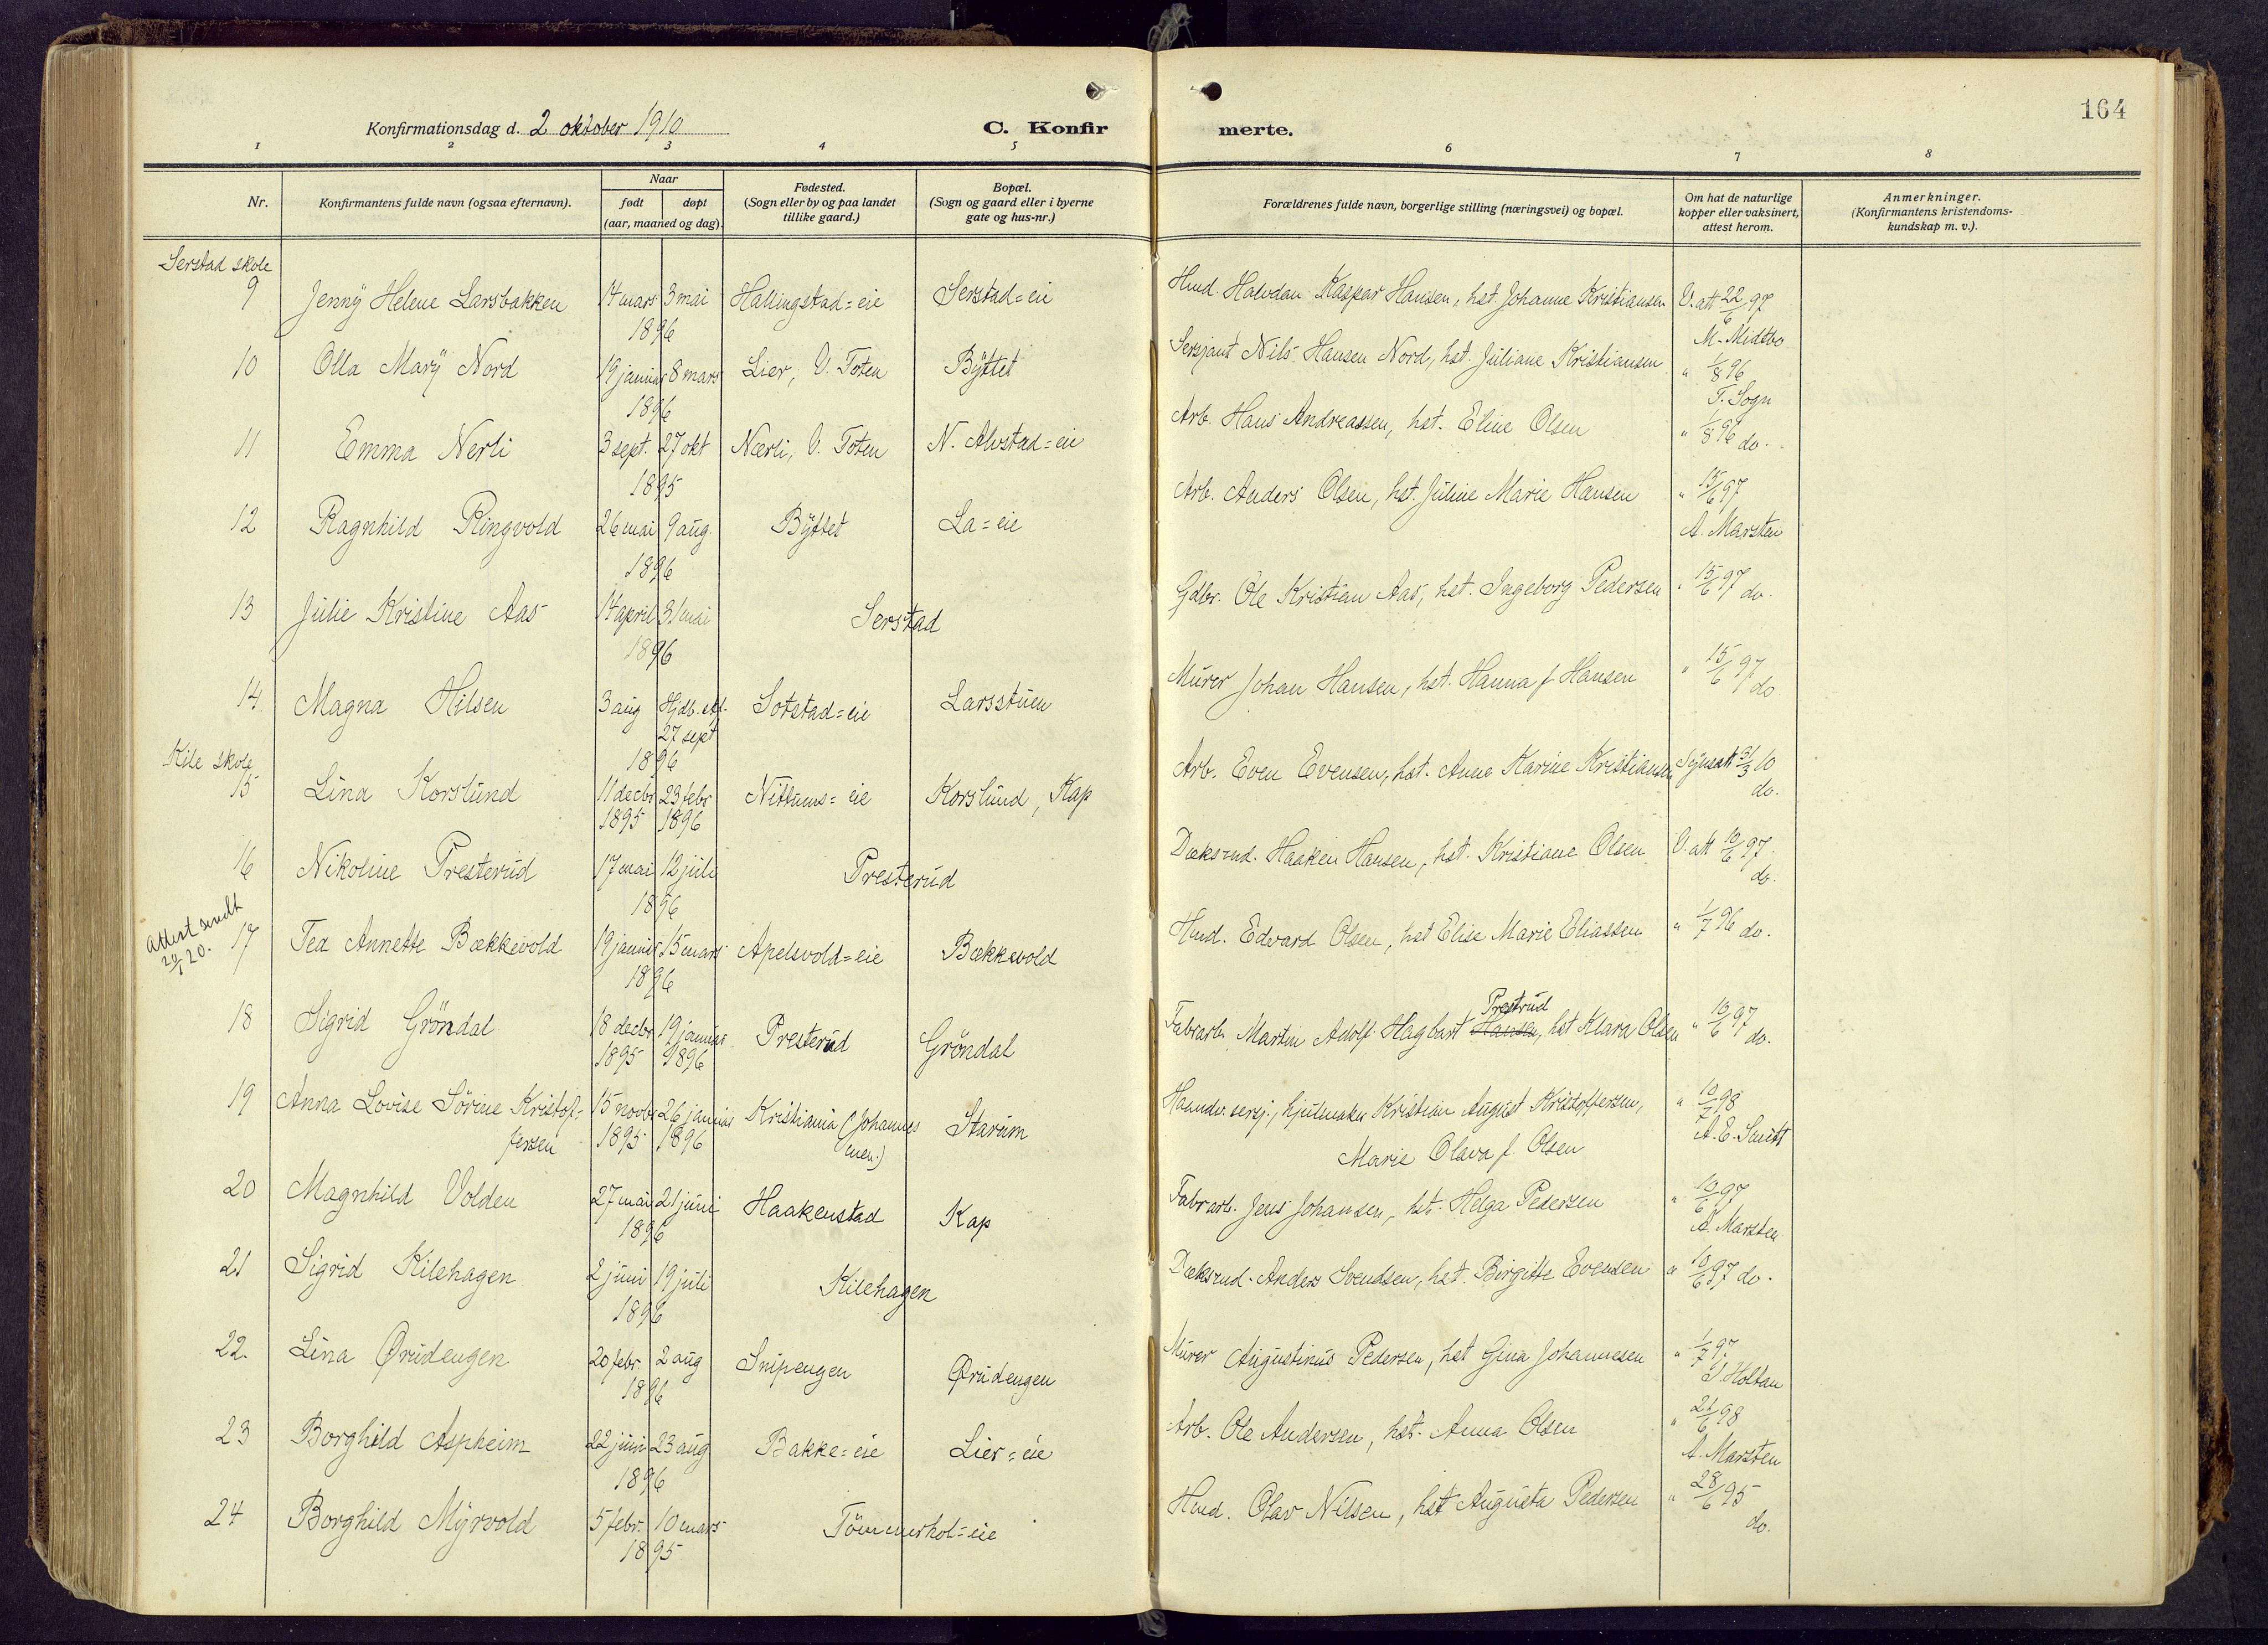 164
Konfirmationsdag d. 2 oktober 1910 C. Konfir merte.
1 2 3 4 5 6 7 8
Nr. Konfirmantens fulde navn (ogsaa efternavn). Naar født døpt (aar, maaned og dag). Fødested. (Sogn eller by og paa landet tillike gaard.) Bopæl. (Sogn og gaard eller i byerne gate og hus-nr.) Forældrenes fulde navn, borgerlige stilling (næringsvei) og bopæl. Om hat de naturlige kopper eller vaksinert, attest herom. Anmerkninger. (Konfirmantens kristendoms-kundskap m. v.).
Serstad skole
9 Jenny Helene Larsbakken 14 mars 3 mai 1896 Hallingstad=eie Serstad=eie Hmd Halvdan Kaspar Hansen, hst. Johanne Kristiansen V. att 22/6 97 M. Midtbo
10 Olla Mary Nord 19 januar 8 mars 1896 Lier, V. Toten Byttet Sersjant Nils Hansen Nord, hst. Juliane Kristiansen " 1/8 96 T. Sogn
11 Emma Nerli 3 sept. 27 okt 1895 Nærli, V. Toten N. Alvstad=eie Arb. Hans Andreassen, hst. Eline Olsen " 1/8 96 do.
12 Ragnhild Ringvold 26 mai 9 aug. 1896 Byttet La=eie Arb. Anders Olsen, hst. Juline Marie Hansen " 15/6 97 A. Marsten
13 Julie Kristine Aas 14 april 31 mai 1896 Serstad Gdbr. Ole Kristian Aas, hst. Ingeborg Pedersen " 15/6 97 do.
14 Magna Hilsen 3 aug Hjdb. 27 sept 1896 Sotstad=eie Larsstuen Murer Johan Hansen, hst. Hanna f Hansen " 15/6 97 do
Kile skole
15 Lina Korslund 11 decbr 1895 23 febr 1896 Nittums=eie Korslund, Kap Arb. Even Evensen, hst. Anne Karine Kristiansen Synsatt 31/3 10 do.
16 Nikoline Presterud 17 mai 12 juli 1896 Presterud Dæksmd. Haaken Hansen, hst. Kristiane Olsen V. att 10/6 97 do.
attest sendt 20/1 20.
17 Tea Annette Bækkevold 19 januar 15 mars 1896 Apelsvold=eie Bækkevold Hmd. Edvard Olsen, hst Elise Marie Eliassen " 1/7 96 do.
18 Sigrid Gröndal 18 decbr 1895 19 januar 1896 Presterud Gröndal Fabrarb. Martin Adolf Hagbart Hansen Prestrud, hst Klara Olsen " 10/6 97 do.
19 Anna Lovise Sörine Kristof-
fersen 15 novbr 1895 26 januar 1896 Kristiania (Johannes men.) Starum Haandv. sersj., hjulmaker Kristian August Kristoffersen,
Marie Olava f. Olsen " 10/7 98 A. E. Smitt
20 Magnhild Volden 27 mai 21 juni 1896 Haakenstad Kap Fabrarb. Jens Johansen, hst. Helga Pedersen " 10/6 97 A. Marsten
21 Sigrid Kilehagen 2 juni 19 juli 1896 Kilehagen Dæksmd. Anders Svendsen, hst. Birgitte Evensen " 10/6 97 do.
22. Lina Ørudengen 20 febr. 2 aug 1896 Snipengen Ørudengen Murer Augustinus Pedersen, hst Gina Johannesen " 1/7 97 Holtan
23 Borghild Aspheim 22 juni 23 aug 1896 Bakke=eie Lier=eie Arb. Ole Andersen, hst. Anna Olsen " 21/6 98 A. Marsten
24 Borghild Myrvold 5 febr. 10 mars 1895 Tömmerhol=eie Hmd. Olav Nilsen, hst Augusta Pedersen " 28/6 95 do.